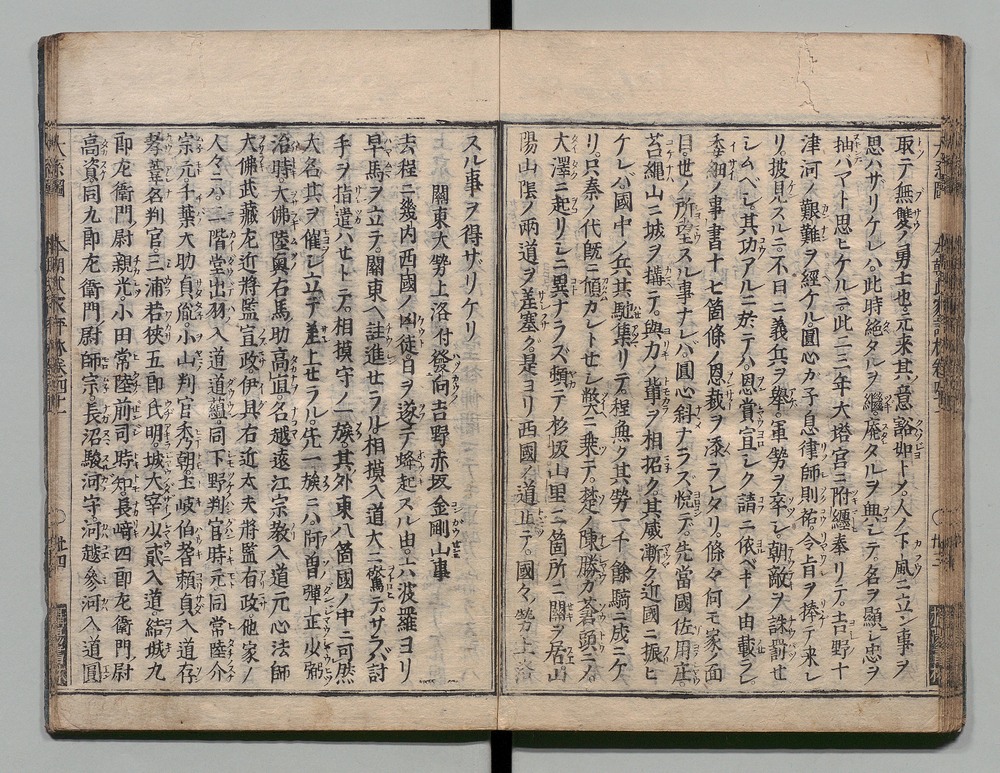 取テ無雙ノ勇士也元来其ノ意豁如トメ人ノ下風ニ立ン事ヲ
思ハザリケレハ此時絶タルヲ繼キ廃タルヲ興シテ名ヲ顯シ忠ヲ
抽ハヤト思ヒケルニ此二三年大塔宮ニ附纏奉リテ吉野十
津河ノ艱難ヲ經ケル圓心カ子息律師則祐令旨ヲ捧テ来レ
リ披見スルニ不日ニ義兵ヲ擧軍勢ヲ率シ朝敵ヲ誅罰せ
シムベシ其功アルニ於テハ恩賞宜シク請ニ依ベキノ由載ラレ
委細ノ事書十七箇條ノ恩裁ヲ添ラレタリ條々何モ家ノ面
目世ノ所望スル事ナレバ圓心斜ナラス悦デ先當國佐用庄
苔縄山ニ城ヲ搆テ與力ノ輩ヲ相招ク其威漸ク近國ニ振ヒ
ケレバ國中ノ兵共馳集リテ程無ク其勢一千餘騎ニ成ニケ
リ只秦ノ代既ニ傾カントせシ弊ニ乗テ楚ノ陳勝カ蒼頭ニメ
大澤ニ起リシニ異ナラズ頓テ杉坂山里ニ箇所ニ關ヲ居山
陽山陰ノ兩道ヲ差塞ク是ヨリ西國ノ道止テ國々ノ勢上洛
スル事ヲ得サリケリ
關東大勢上洛付發向吉野赤坂金剛山事
去程ニ幾内西國ノ凶徒日ヲ逐テ蜂起スル由六波羅ヨリ
早馬ヲ立テ關東ヘ註進せラル相摸入道大ニ驚テサラバ討
手ヲ指遣ハせトテ相摸守ノ一族其外東八箇國ノ中ニ可然
大名共ヲ催シ立テ差上せラル先一族ニハ阿曽彈正少弼
治時大佛陸奥右馬助高直名越遠江宗教入道元心法師
大佛武藏左近將監宣政伊具右近太夫將監有政他家ノ
人々ニハ二階堂出羽入道道蘊同下野判官時元同常陸介
宗元千葉大助貞胤小山判官秀朝土岐伯耆頼貞入道存
孝葦名判官三浦若狭五郎氏明城大宰少貳入道結城九
郎左衛門尉親光小田常陸前司時知長﨑四郎左衛門尉
高資同九郎左衛門尉師宗長沼駿河守河越參河入道圓